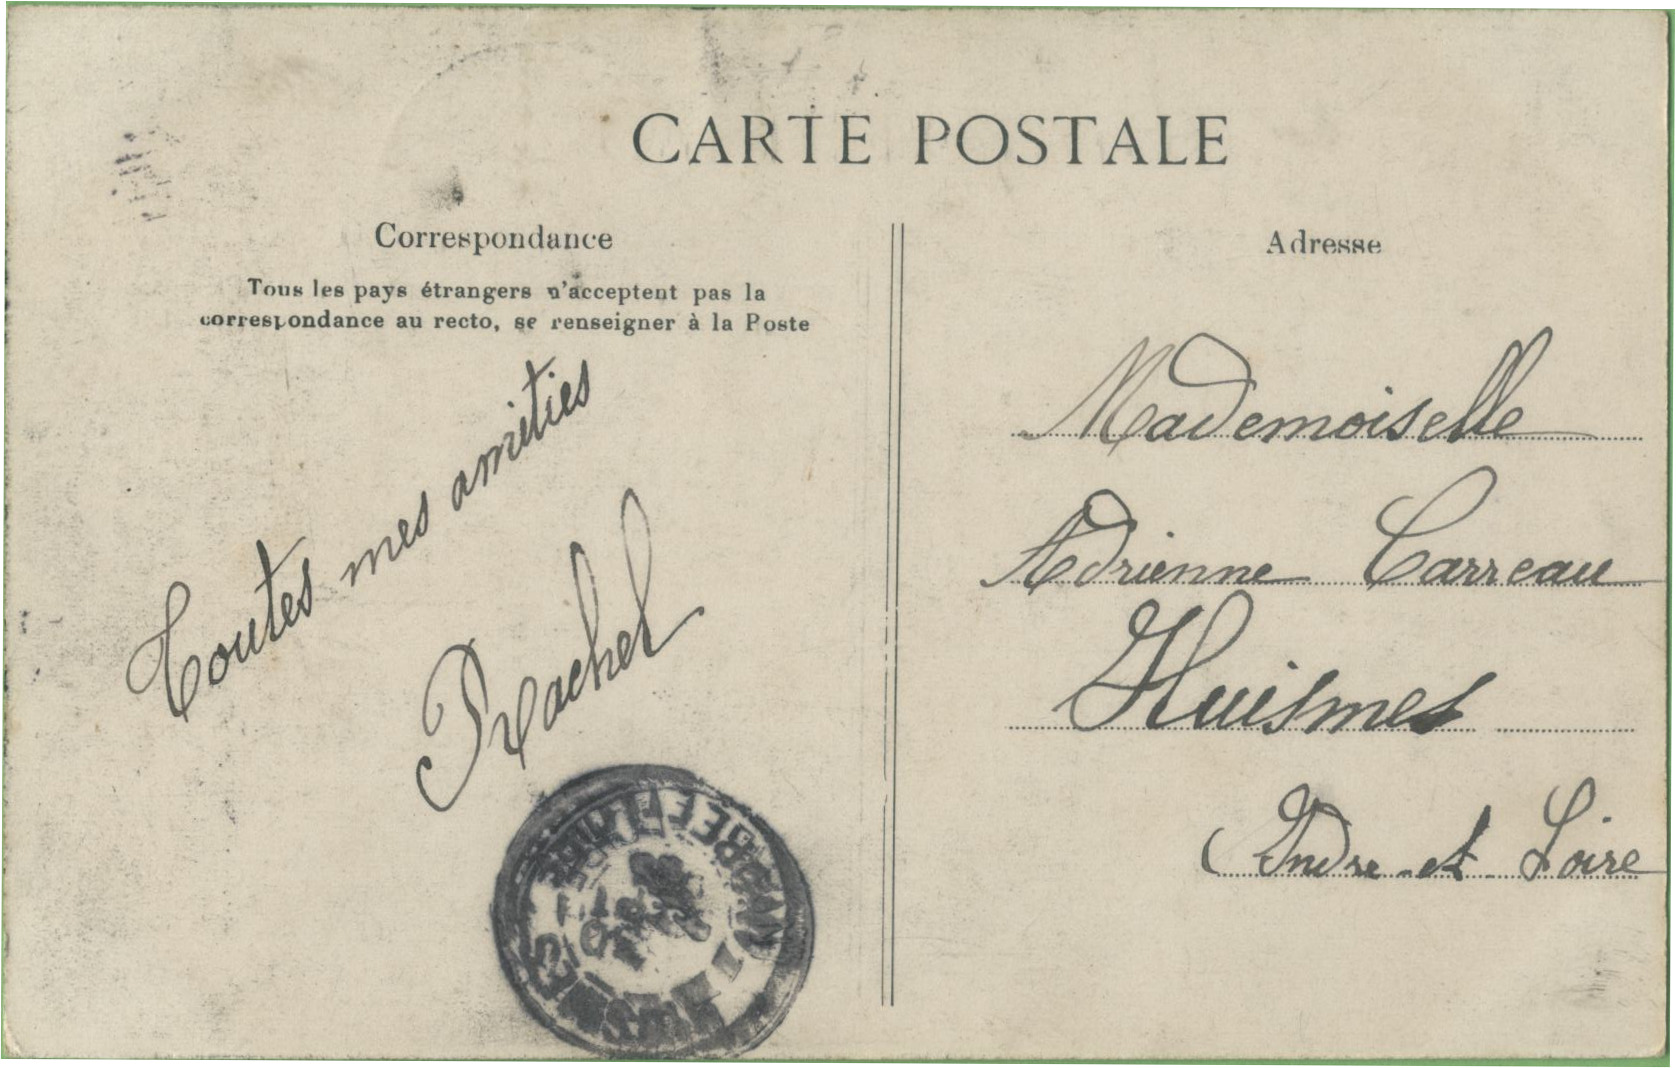 CARTE POSTALE
Correspondance
Tous les pays étrangers n'acceptent pas la
correspondance au recto, se renseigner à la Poste
Toutes mes amitiés
Rachel
Adresse
Mademoiselle
Adrienne Carreau
Huismes
Indre-et-Loire
HUISMES
INDRE ET LOIRE